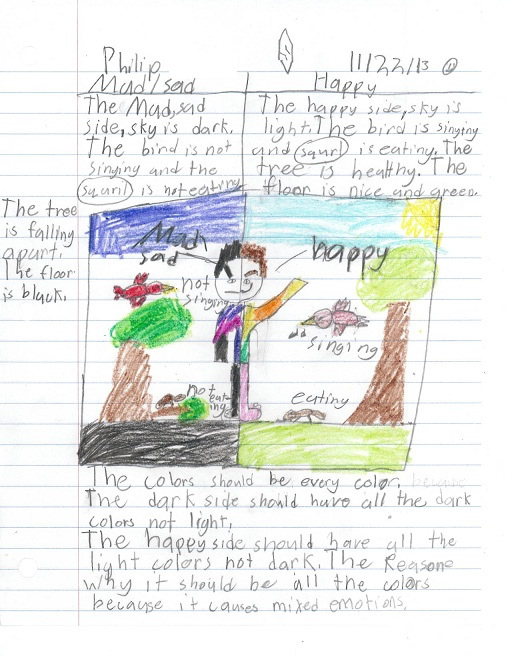 Philip 11/22/13
Mad/sad
The Mad,sad
side,sky is dark.
The bird is not
singing and the
squril is not eating
The tree
is falling
apart.
The floor
is black.
Happy
The happy side,sky is
light.The bird is singing
and squrl is eating.The
tree is healthy. The
floor is nice and green.
Mad
sad
happy
not
singing
singing
not
eat-
ing
eating
The colors should be every color,
The dark side should have all the dark
colors not light,
The happy side should have all the
light colors not dark.The Reasone
why it should be all the colors
because it causes mixed emotions.